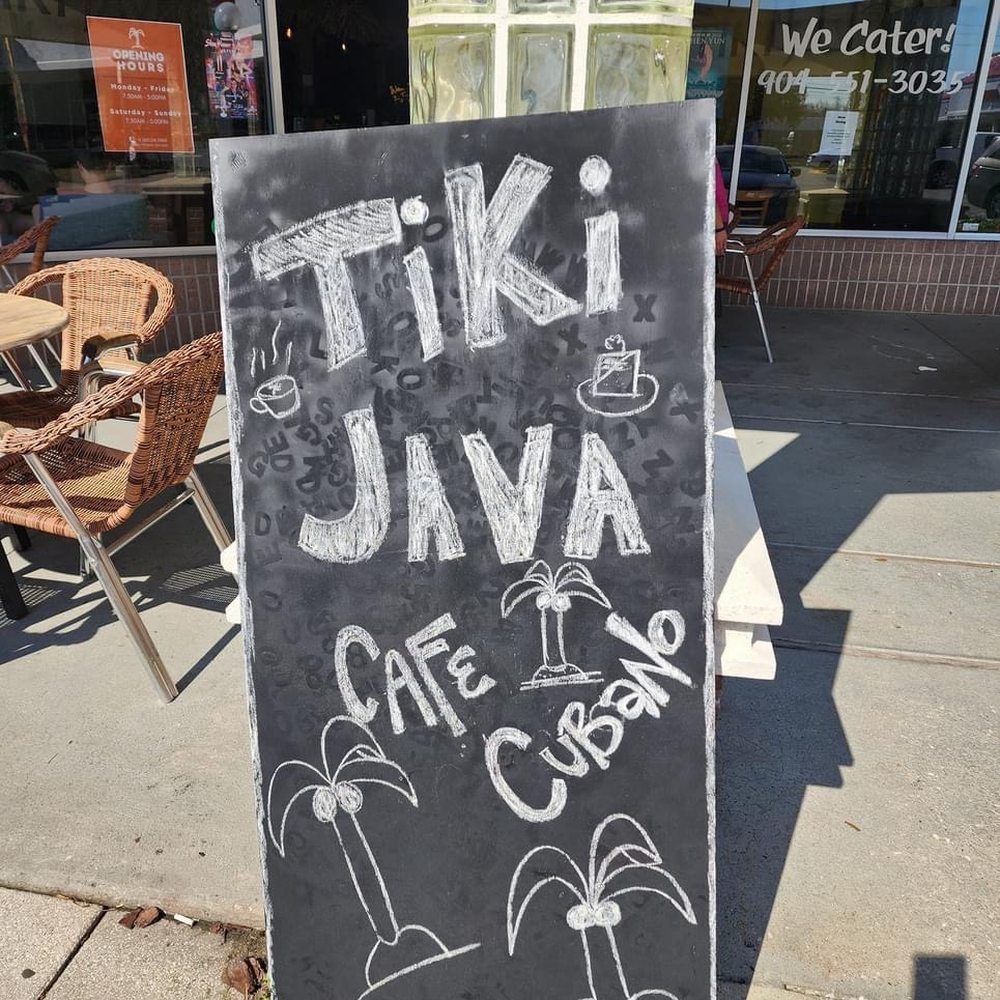 OPENING
HOURS
Monday - Friday
7:30AM - 5:00PM
Saturday - Sunday
We Cater!
904-551-3035
TiKi
JAVA
CAFE
CUBaNO